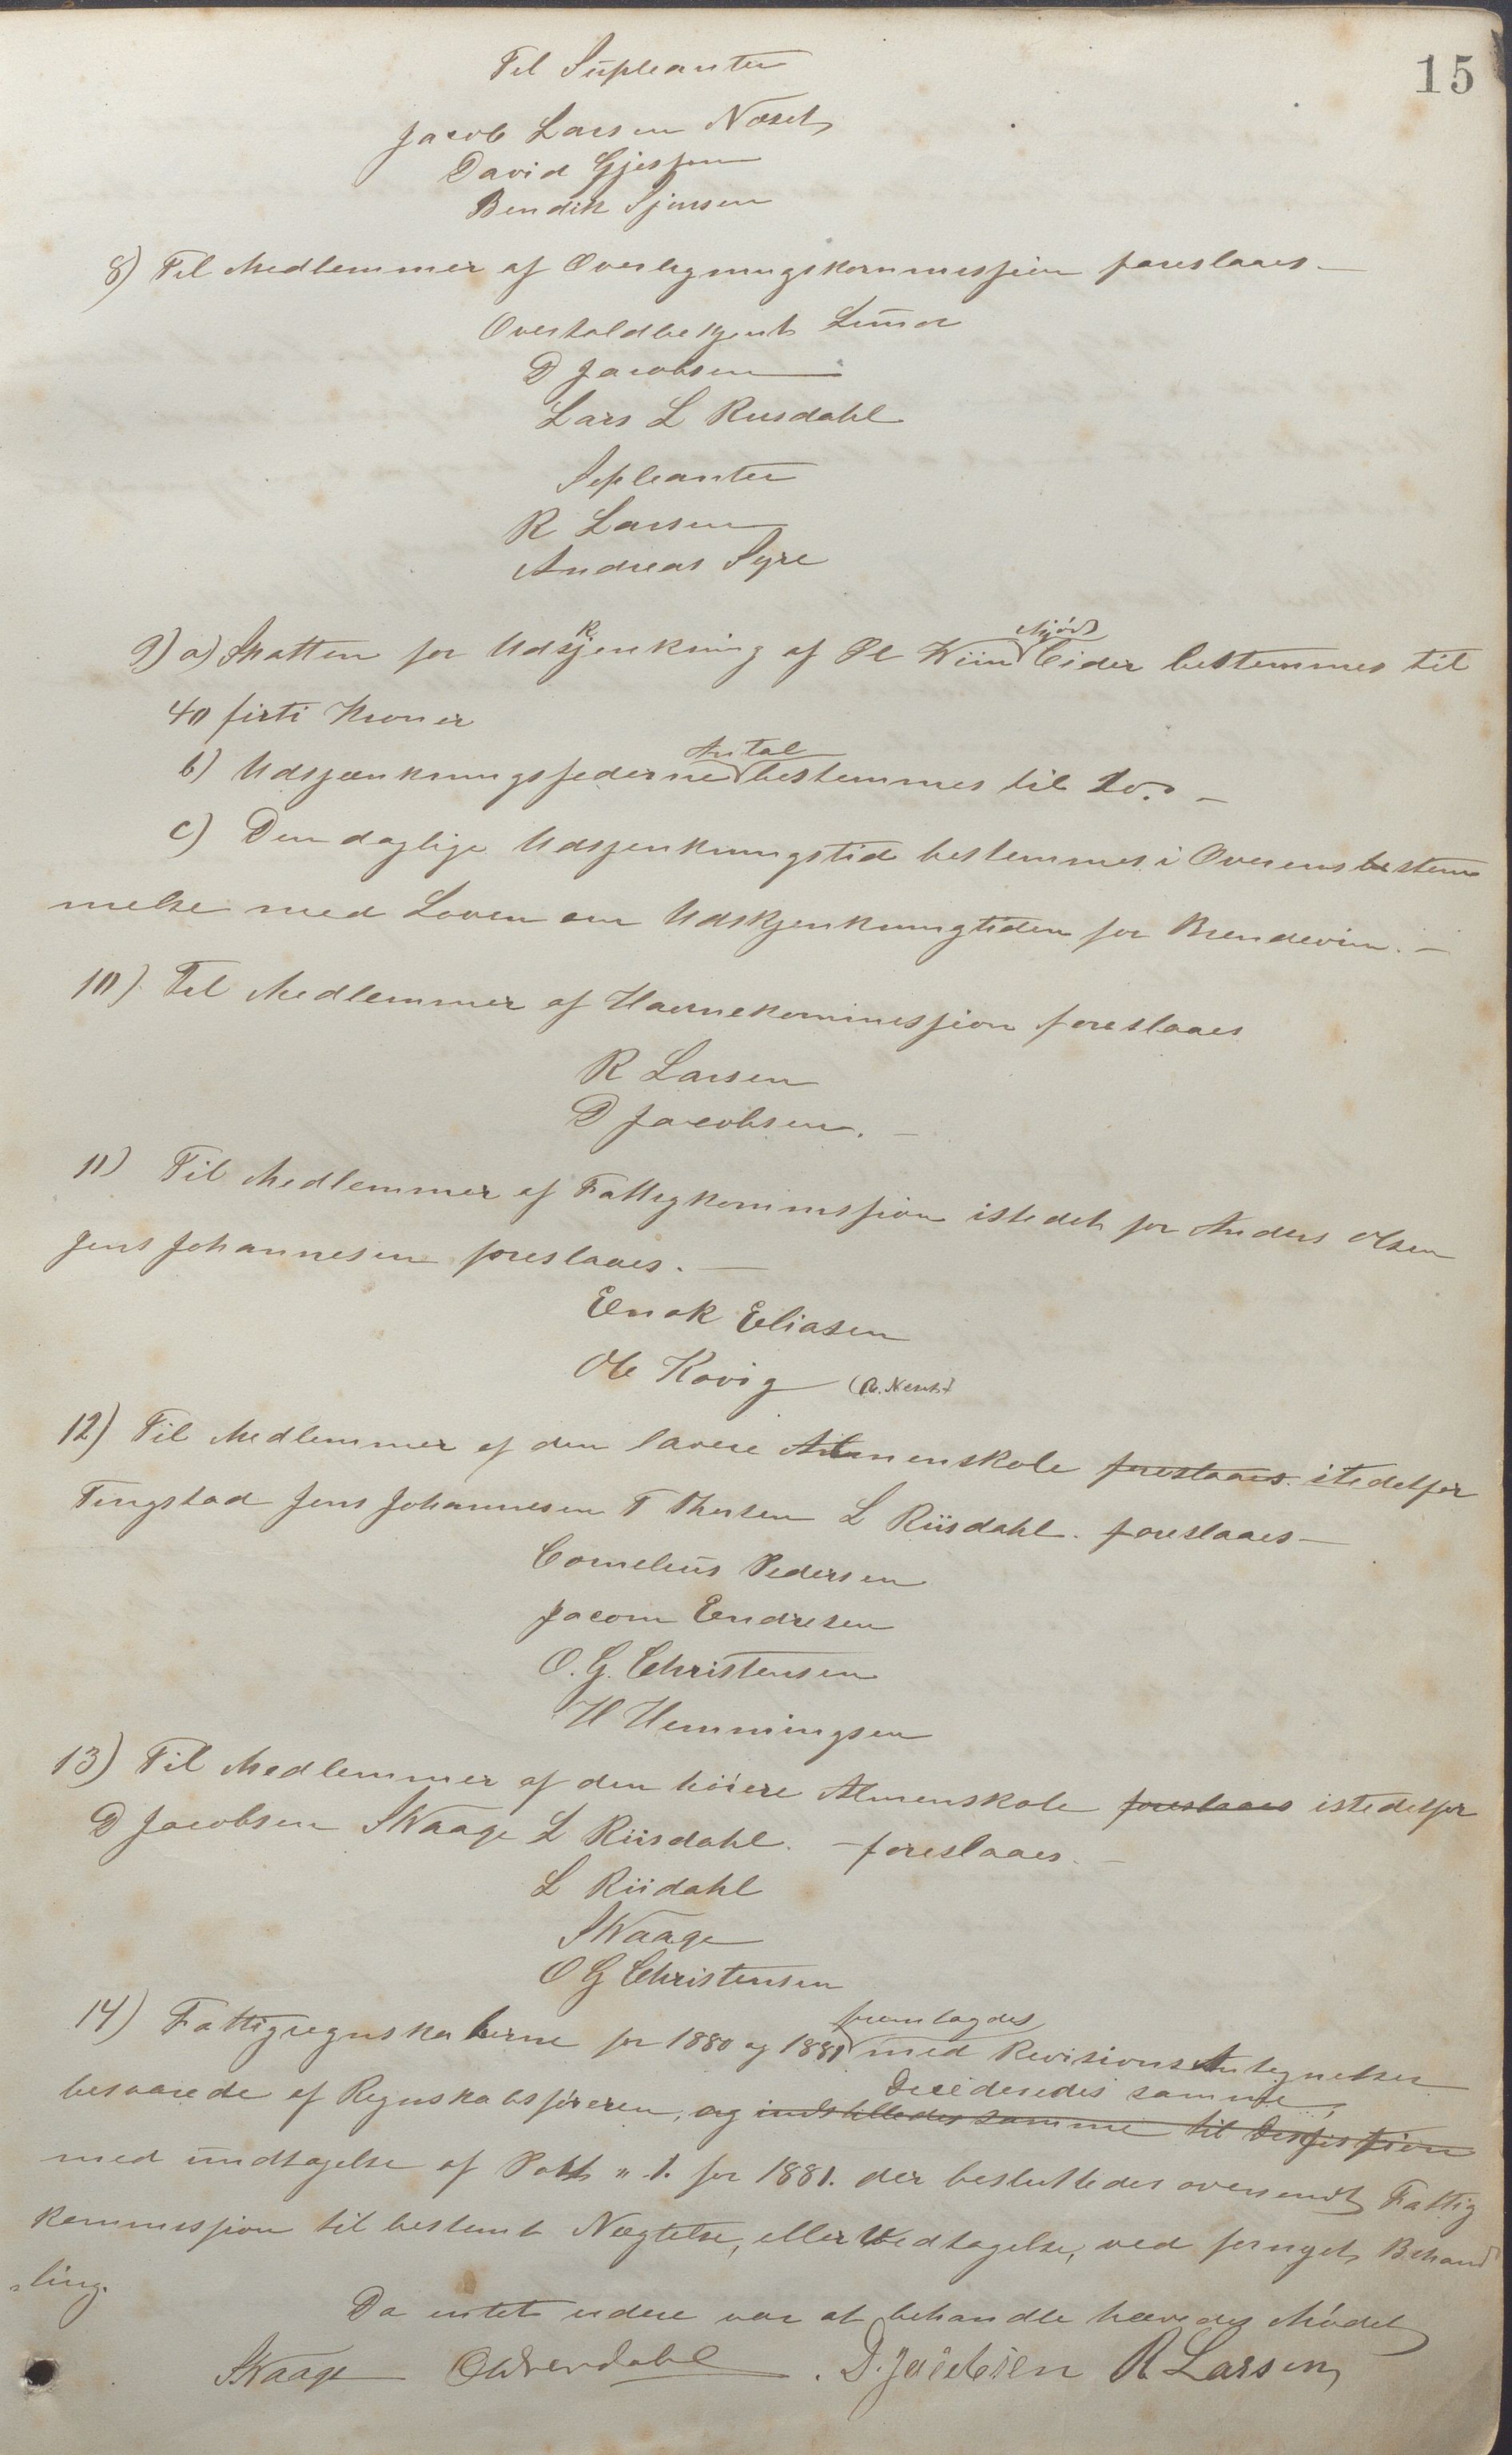 15
Til Supleanter
Jacob Larsen Næset
David Gjessen
Bendik Sjursen
8) Til Medlemmer af Overligningskommission foreslaaes.—
Overtoldbetjent Lunde
D Jacobsen
Lars L Riisdahl
Sepleanter
R Larsen
Andreas Syre
9) a) Skatten for Udskjenkning af Øl Viin Mjød Cider bestemmes til
40 firti Kroner
b) Udsjænkningsstederne Antal bestemmes til 10. —
c) Den daglige Udsjenkningstid bestemmes i Overensbestem
melse med Loven om Udskjenkningtiden for Brendevin. —
10) Til Medlemmer af Havnekommission foreslaaes
R Larsen
D Jacobsen. —
11) Til Medlemmer af Fattigkommission istedet for Anders Olsen
Jens Johannesen foreslaaes. —
Enok Eliasen
Ole Kovig
12) Til Medlemmer af den lavere Almenskole foreslaaes. istedetfor
Tengstad Jens Johannesen T Thorsen L Riisdahl. foreslaaes —
Cornelius Pedersen
Jacom Endresen
O. G. Christensen
H Hemmingsen
13) Til Medlemmer af den høiere Almenskole foreslaaes istedetfor
D Jacobsen S Waage L Riisdahl. — foreslaaes. —
L Riidahl
S Waage
O G Christensen
14) Fattigregnskaberne for 1880 og 1881 fremlagdes med Revisions Antegnelser
besvarede af Regnskabsføreren, og indstilledes samme til Desission Desideredes samme,
med undtagelse af Post " 1. for 1881. der besluttedes oversendt Fattig
kommission til bestemt Nægtelse, eller Vedtagelse, ved fornyet Behand
„ling.
Da intet videre var at behandle hævedes Mødet
S Waage D. Jacobsen R Larsen